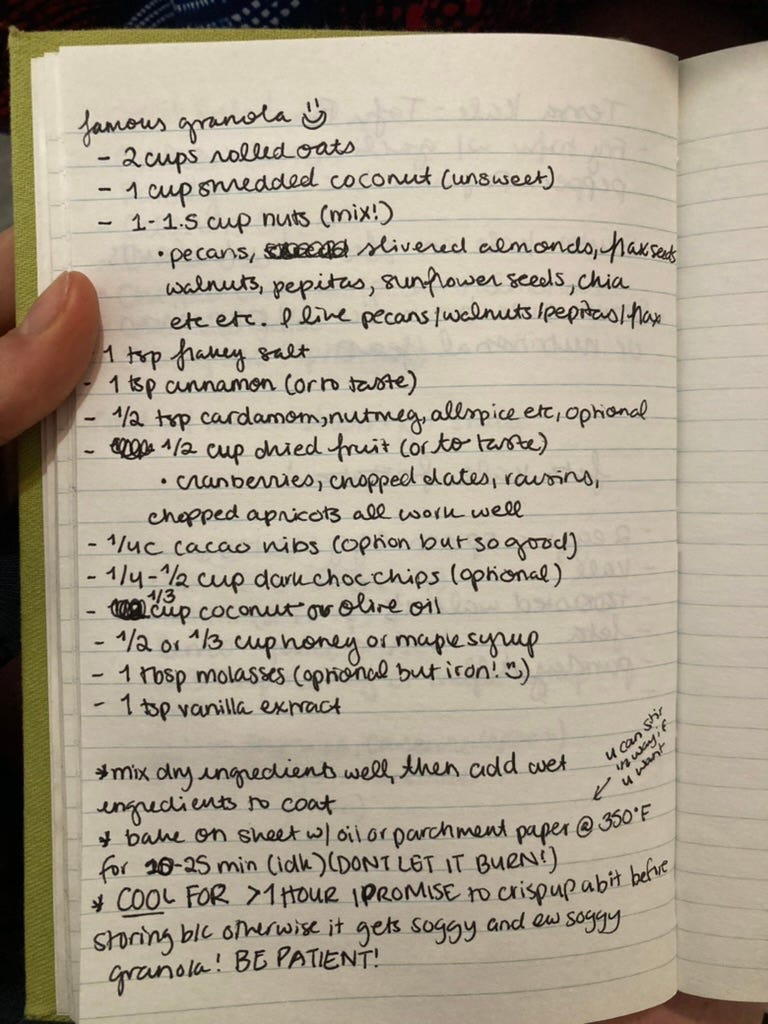 famous granola
- 2 cups rolled oats
- 1 cup shredded coconut (unsweet)
- 1-1.5 cup nuts (mix!)
• pecans, slivered almonds, flax seeds
walnuts, pepitas, sunflower seeds, chia
etc etc. I like pecans/walnuts/pepitas/flax
- 1 tsp flakey salt
- 1 tsp cinnamon (or to taste)
- 1/2 tsp cardamom, nutmeg, allspice etc, optional
- 1/2 cup dried fruit (or to taste)
• cranberries, chopped dates, raisins,
chopped apricots all work well
- 1/4 c cacao nibs (option but so good)
- 1/4-1/2 cup dark choc chips (optional)
- 1/3 cup coconut or olive oil
- 1/2 or 1/3 cup honey or maple syrup
- 1 tbsp molasses (optional but iron! :))
- 1 tsp vanilla extract
* mix dry ingredients well, then add wet
ingredients to coat
u can stir
1/2 way if
u want
* bake on sheet w/ oil or parchment paper @ 350°F
for 20-25 min (idk) (DONT LET IT BURN!)
* COOL FOR >1 HOUR I PROMISE to crisp up a bit before
storing b/c otherwise it gets soggy and ew soggy
granola! BE PATIENT!